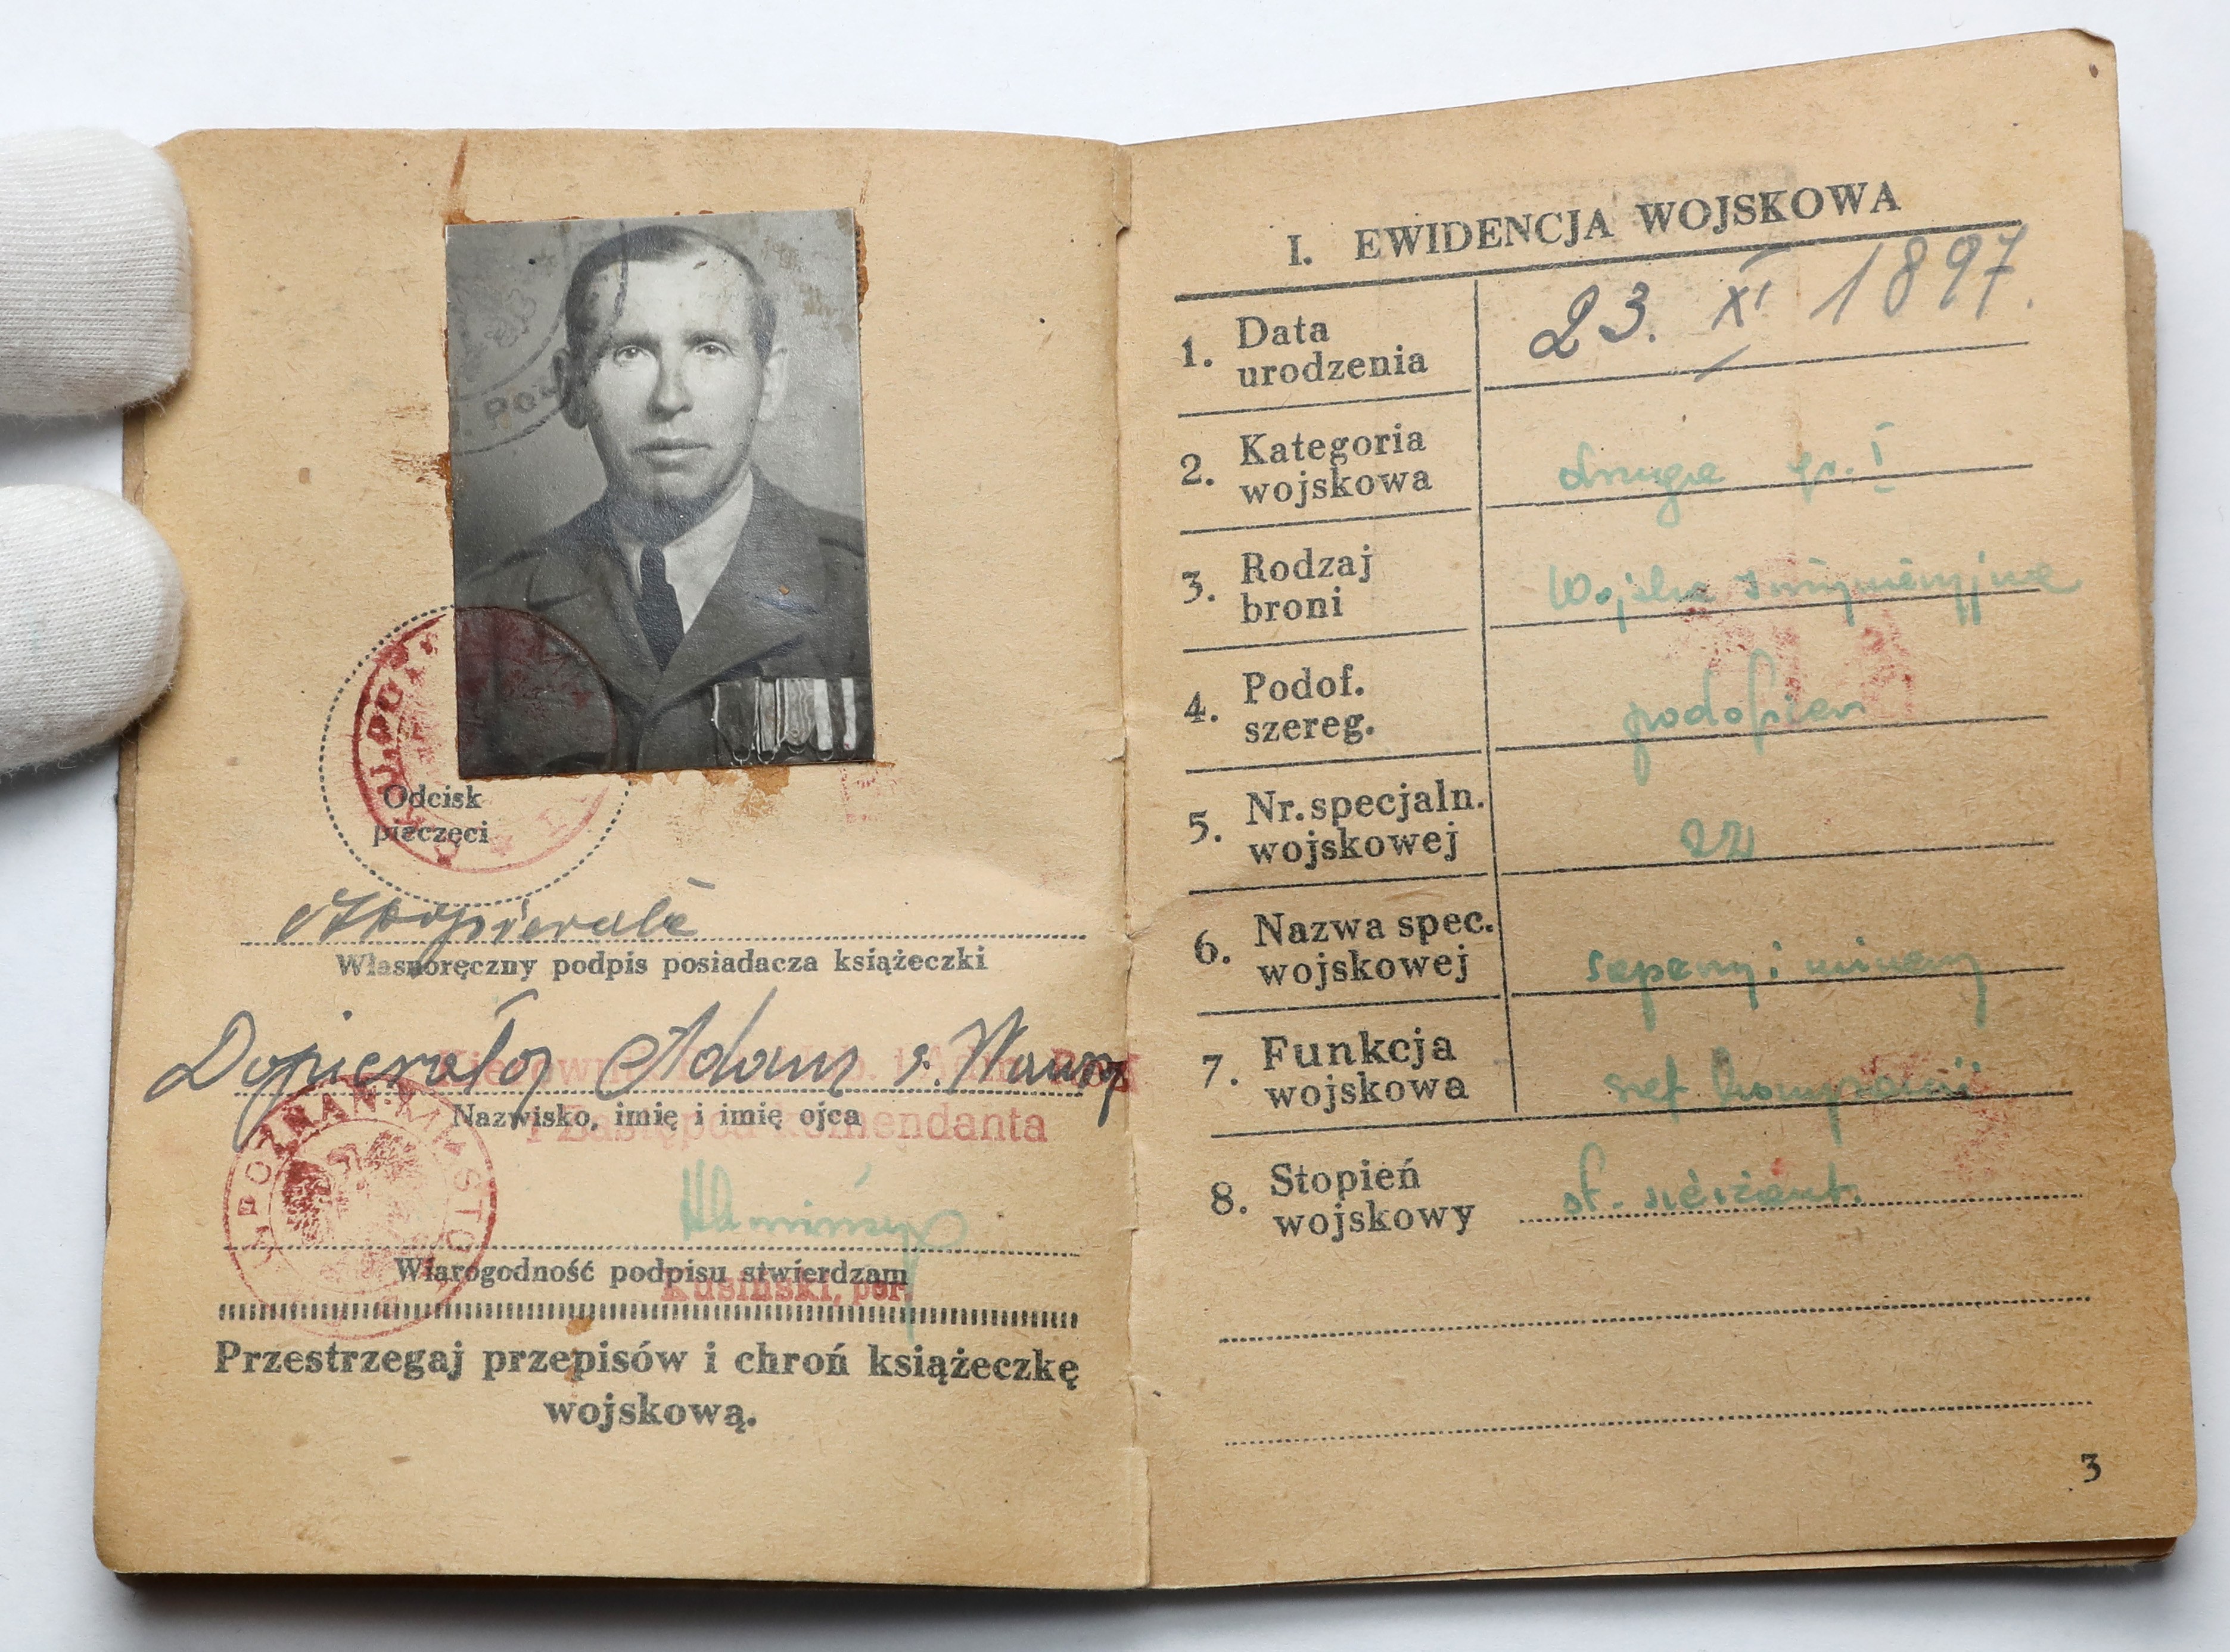 Odcisk
pieczęci
ADopierała
Własnoręczny podpis posiadacza książeczki
Dopierała Adam s. Wawrz
Nazwisko, imię i imię ojca
Zastępca komendanta
POZNAŃ-MIASTO
Wiarogodność podpisu stwierdzam
Kusiński, por.
Przestrzegaj przepisów i chroń książeczkę
wojskową.
I. EWIDENCJA WOJSKOWA
1. Data urodzenia 23. XI 1897.
2. Kategoria wojskowa druga gr. I
3. Rodzaj broni Wojska inżynieryjne
4. Podof. szereg. podoficer
5. Nr. specjaln. wojskowej 22
6. Nazwa spec. wojskowej saperzy i minerzy
7. Funkcja wojskowa szef kompanii
8. Stopień wojskowy st. sierżant.
3